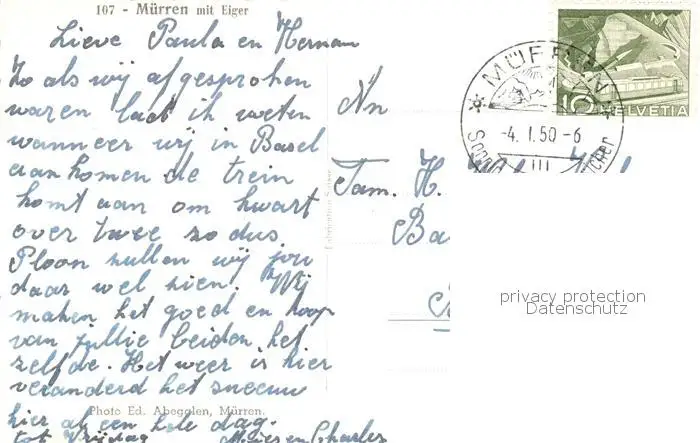 107 - Mürren mit Eiger
Lieve Paula en Herman
Zo als wij afgesproken
waren laat ik weten
wanneer wij in Basel
aankomen de trein
komt aan om kwart
over twee zo dus
zullen wij jou
daar wel zien. Wij
maken het goed en hoop
van jullie beiden het
zelfde. Het weer is hier
veranderd het sneeuw
Photo Ed. Abegglen, Mürren.
hier al een hele dag.
tot Vrijdag
en Charles
An
Fam. H.
Ba
MÜRREN
-4. I. 50 -6
10 HELVETIA
privacy protection
Datenschutz